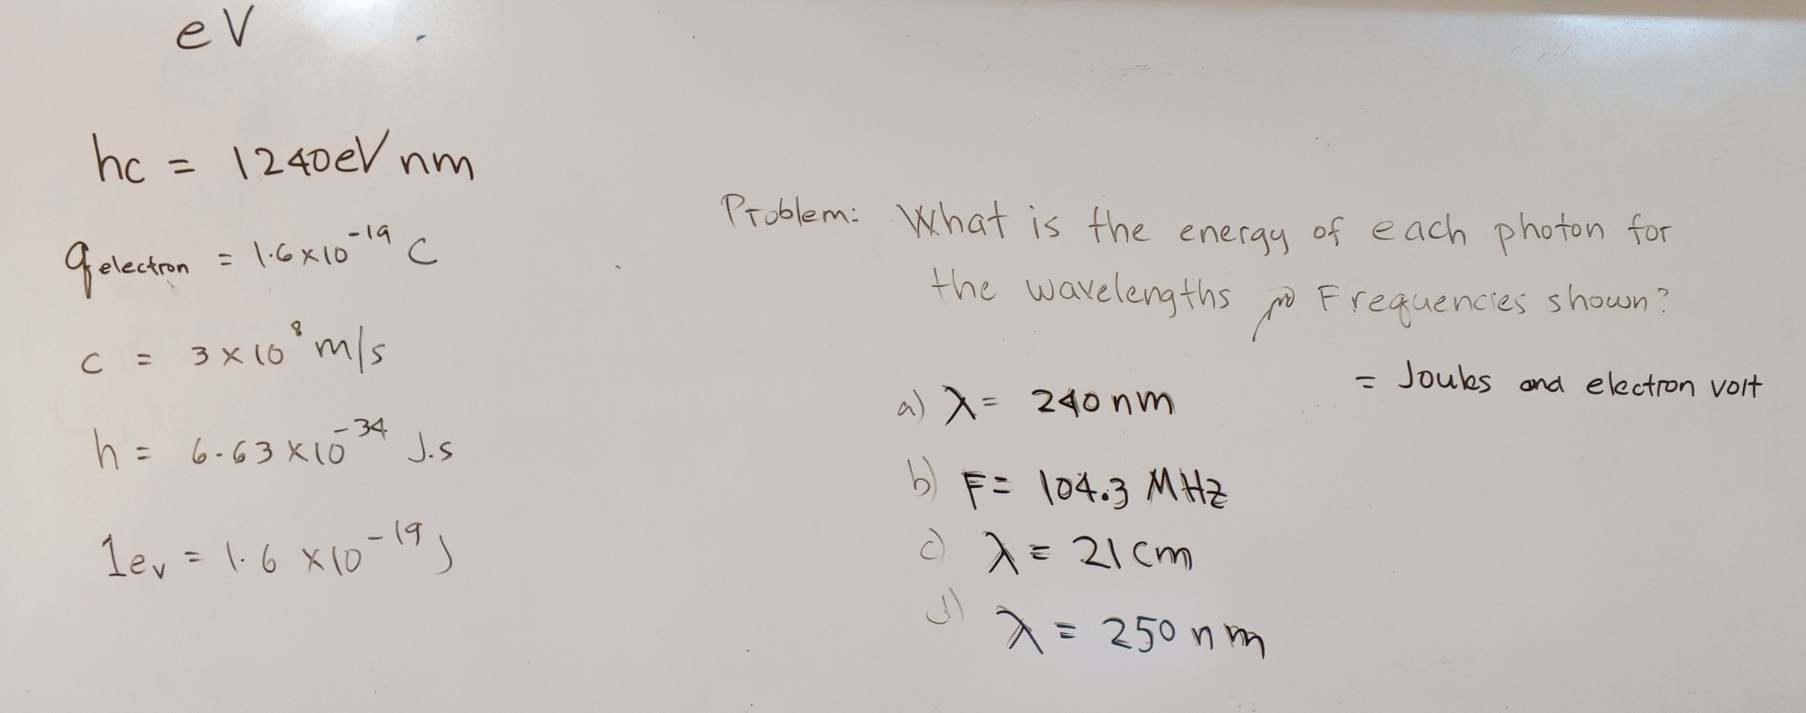 eV
hc = 1240eV nm
q electron = 1.6×10⁻¹⁹ C
c = 3×10⁸ m/s
h = 6.63×10⁻³⁴ J.s
1ev = 1.6 ×10⁻¹⁹ J
Problem: What is the energy of each photon for
the wavelengths Frequencies shown?
= Joules and electron volt
a) λ = 240 nm
b) F = 104.3 MHz
c) λ = 21 cm
d) λ = 250 nm